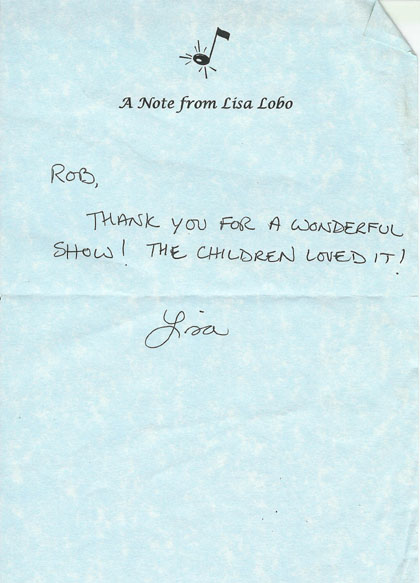 A Note from Lisa Lobo
ROB,
THANK YOU FOR A WONDERFUL
SHOW! THE CHILDREN LOVED IT!
Lisa